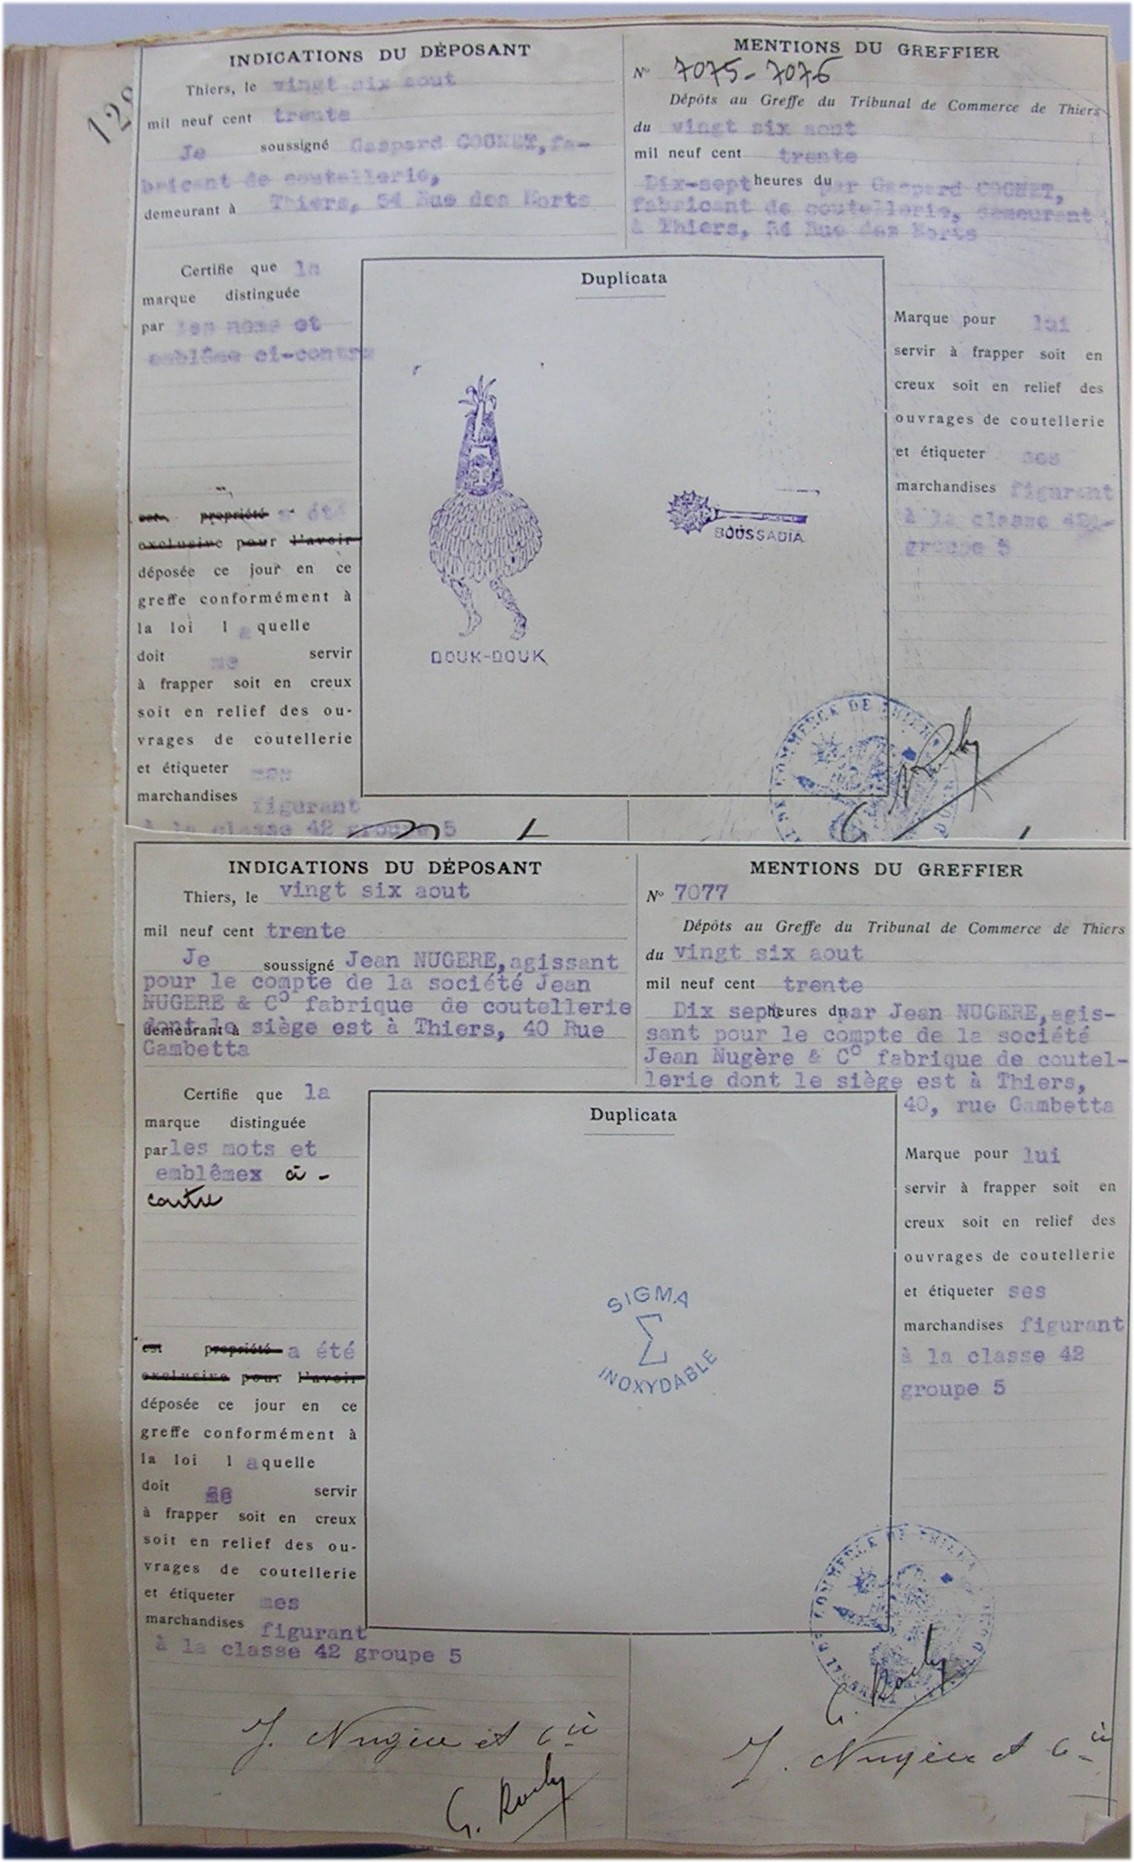 128
INDICATIONS DU DÉPOSANT
Thiers, le vingt six aout
mil neuf cent trente
Je soussigné Gaspard COGNET, fa-
bricant de coutellerie,
demeurant à Thiers, 54 Rue des Horts
MENTIONS DU GREFFIER
N° 7075-7076
Dépôts au Greffe du Tribunal de Commerce de Thiers
du vingt six aout
mil neuf cent trente
Dix-sept heures du par Gaspard COGNET,
fabricant de coutellerie, demeurant
à Thiers, 54 Rue des Horts
Certifie que la
marque distinguée
par les noms et
emblême ci-contre
est propriété a été
exclusive pour l'avoir
déposée ce jour en ce
greffe conformément à
la loi laquelle
doit me servir
à frapper soit en creux
soit en relief des ou-
vrages de coutellerie
et étiqueter mes
marchandises figurant
à la classe 42 groupe 5
Duplicata
DOUK-DOUK
BOUSSADIA
COMMERCE DE THIERS
Marque pour lui
servir à frapper soit en
creux soit en relief des
ouvrages de coutellerie
et étiqueter ses
marchandises figurant
à la classe 42
groupe 5
INDICATIONS DU DÉPOSANT
Thiers, le vingt six aout
mil neuf cent trente
Je soussigné Jean NUGERE, agissant
pour le compte de la société Jean
NUGERE & C° fabrique de coutellerie
demeurant à dont le siège est à Thiers, 40 Rue
Gambetta
MENTIONS DU GREFFIER
N° 7077
Dépôts au Greffe du Tribunal de Commerce de Thiers
du vingt six aout
mil neuf cent trente
Dix sept heures du par Jean NUGERE, agis-
sant pour le compte de la société
Jean Nugère & C° fabrique de coutel-
lerie dont le siège est à Thiers,
40, rue Gambetta
Certifie que la
marque distinguée
par les mots et
emblêmex ci-
contre
est propriété a été
exclusive pour l'avoir
déposée ce jour en ce
greffe conformément à
la loi laquelle
doit me servir
à frapper soit en creux
soit en relief des ou-
vrages de coutellerie
et étiqueter mes
marchandises figurant
à la classe 42 groupe 5
Duplicata
SIGMA
Σ
INOXYDABLE
Marque pour lui
servir à frapper soit en
creux soit en relief des
ouvrages de coutellerie
et étiqueter ses
marchandises figurant
à la classe 42
groupe 5
COMMERCE DE THIERS
J. Nugère et Cie
J. Nugère et Cie